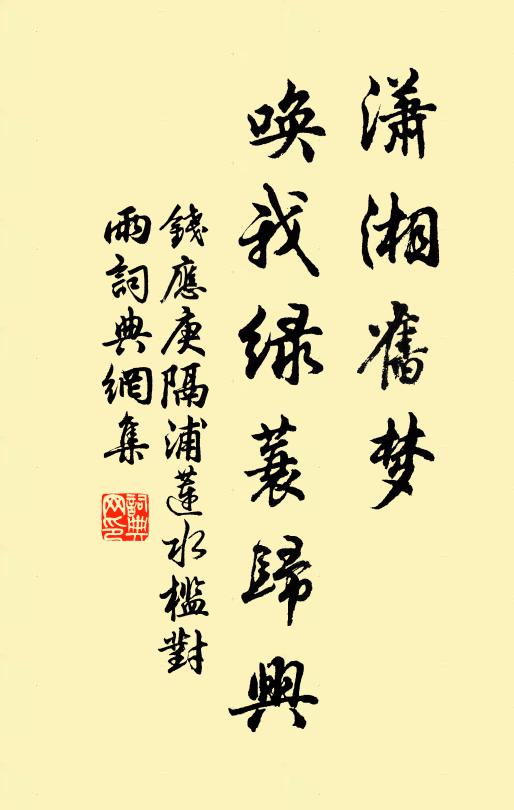 瀟湘舊梦
唤我绿蓑歸興
錢應庚隔浦蓮水檻對
雨詞典網集
詞典網印